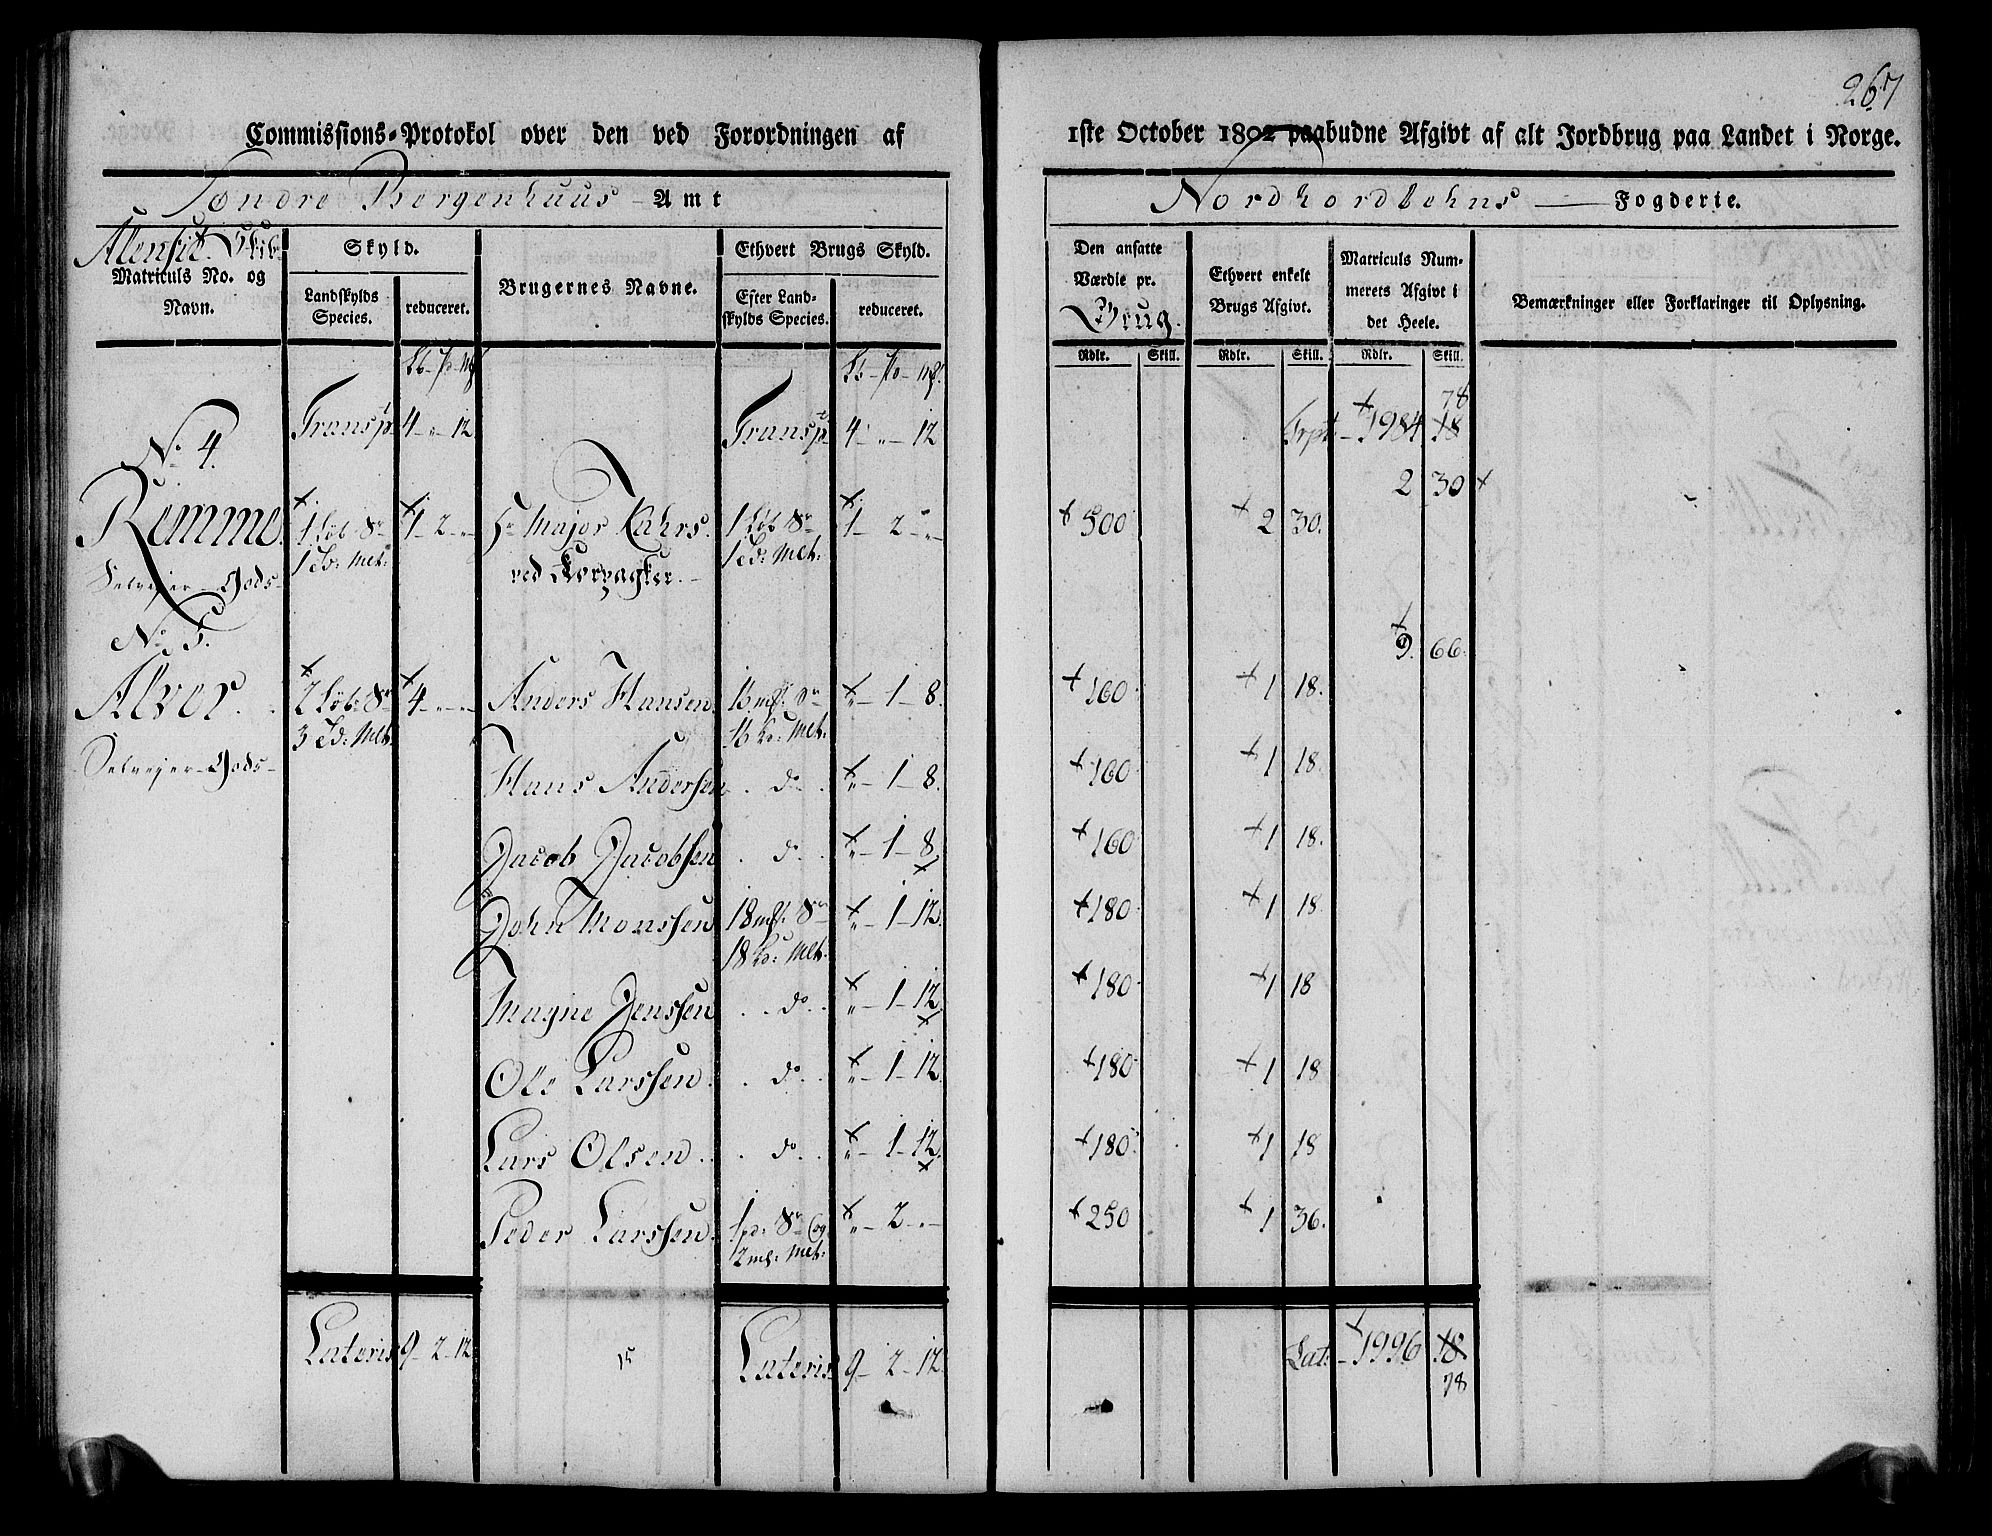 267
Commissions-Protokol over den ved Forordningen af 1ste October 1802 paabudne Afgivt af alt Jordbrug paa Landet i Norge.
Søndre Bergenhuus Amt Nordhordlehns Fogderie.
Alensit Skib.
Matriculs No. og Navn.
Skyld.
Landskylds Species.
reduceret.
Brugernes Navne.
Ethvert Brugs Skyld.
Efter Landskylds Species.
reduceret.
Den ansatte Værdie pr. Brug.
Ethvert enkelt Brugs Afgivt.
Matriculs Nummerets Afgivt i det Heele.
Bemærkninger eller Forklaringer til Oplysning.
Rdlr. Skill. Rdlr. Skill. Rdlr. Skill.
Transpt 4 - „ - 12 Transpt 4 - „ - 12 Trpt. 1984 18 78
No 4.
2 30
Remme 1 Løb Sr 1 - 2 - „ Hr Major Fahrs 1 Løb Sr 1 - 2 - „ 500 2 30.
1 Td: Mel: ved 1 Td: Mel:
Selvejer Gods
No 5.
9. 66.
Alver. 2 Løb Sr 4 - „ - „ Anders Hansen 16 mk: Sr „ - 1 - 8. 160 1 18.
3 Td: Mel: 16 Ka: Mel:
Selvejer Gods
Hans Andersen do „ - 1 - 8. 160 1 18.
Jacob Jacobsen do „ - 1 - 8. 160 1 18.
John Monssen 18 mk: Sr „ - 1 - 12. 180 1 18
18 Ka: Mel:
Magne Jenssen do „ - 1 - 12 180 1 18
Ole Larssen do „ - 1 - 12 180 1 18
Lars Olsen do „ - 1 - 12. 180 1 18
Peder Larssen 1 pd: Sr og „ - 2 - „ 250 1 36.
2 ml: Mel:
Lateris 9 - 2 - 12 15 Lateris 9 - 2 - 12. Lat: 1996 18.
78